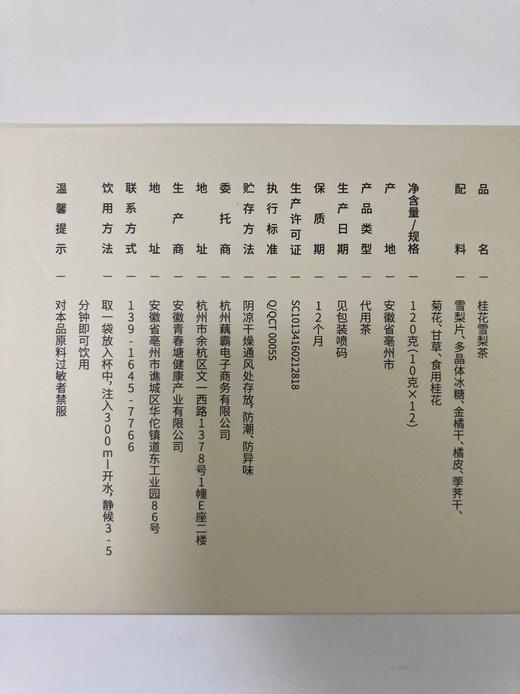 品名 — 桂花雪梨茶
配料 — 雪梨片、多晶体冰糖、金橘干、橘皮、荸荠干、
菊花、甘草、食用桂花
净含量/规格 — 120克(10克×12)
产地 — 安徽省亳州市
产品类型 — 代用茶
生产日期 — 见包装喷码
保质期 — 12个月
生产许可证 — SC10134160212818
执行标准 — Q/QCT 0005S
贮存方法 — 阴凉干燥通风处存放,防潮、防异味
委托商 — 杭州藕霸电子商务有限公司
地址 — 杭州市余杭区文一西路1378号1幢E座二楼
生产商 — 安徽青春塘健康产业有限公司
地址 — 安徽省亳州市谯城区华佗镇道东工业园86号
联系方式 — 139-1645-7766
饮用方法 — 取一袋放入杯中,注入300ml开水,静候3-5
分钟即可饮用
温馨提示 — 对本品原料过敏者禁服